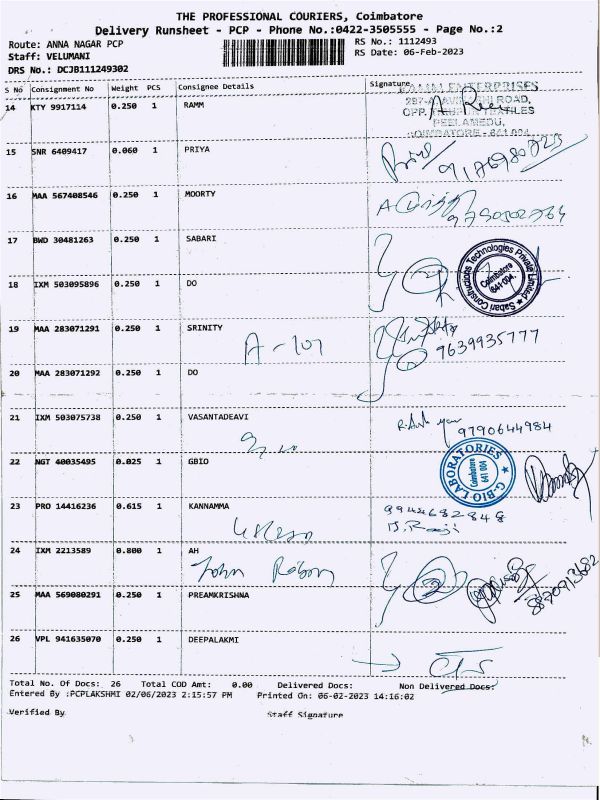 THE PROFESSIONAL COURIERS, Coimbatore
Delivery Runsheet - PCP - Phone No.:0422-3505555 - Page No.:2
Route: ANNA NAGAR PCP RS No.: 1112493
Staff: VELUMANI RS Date: 06-Feb-2023
DRS No.: DCJB111249302
S No Consignment No Weight PCS Consignee Details Signature
14 KTY 9917114 0.250 1 RAMM
ENTERPRISES
ROAD,
OPP. TEXTILES
PEELAMEDU,
COIMBATORE - 641 004
15 SNR 6409417 0.060 1 PRIYA
16 MAA 567408546 0.250 1 MOORTY
17 BWD 30481263 0.250 1 SABARI
Sabari Constructions Technologies Private Limited
Coimbatore
641 004.
18 IXM 503095896 0.250 1 DO
19 MAA 283071291 0.250 1 SRINITY
A - 101 9639935777
20 MAA 283071292 0.250 1 DO
21 IXM 503075738 0.250 1 VASANTADEAVI
9790644984
22 NGT 40035495 0.025 1 GBIO
G-BIO LABORATORIES
Coimbatore
641 004
23 PRO 14416236 0.615 1 KANNAMMA
9944682848
24 IXM 2213589 0.800 1 AH
John
25 MAA 569080291 0.250 1 PREAMKRISHNA
26 VPL 941635070 0.250 1 DEEPALAKMI
Total No. Of Docs: 26 Total COD Amt: 0.00 Delivered Docs: Non Delivered Docs:
Entered By :PCPLAKSHMI 02/06/2023 2:15:57 PM Printed On: 06-02-2023 14:16:02
Verified By Staff Signature